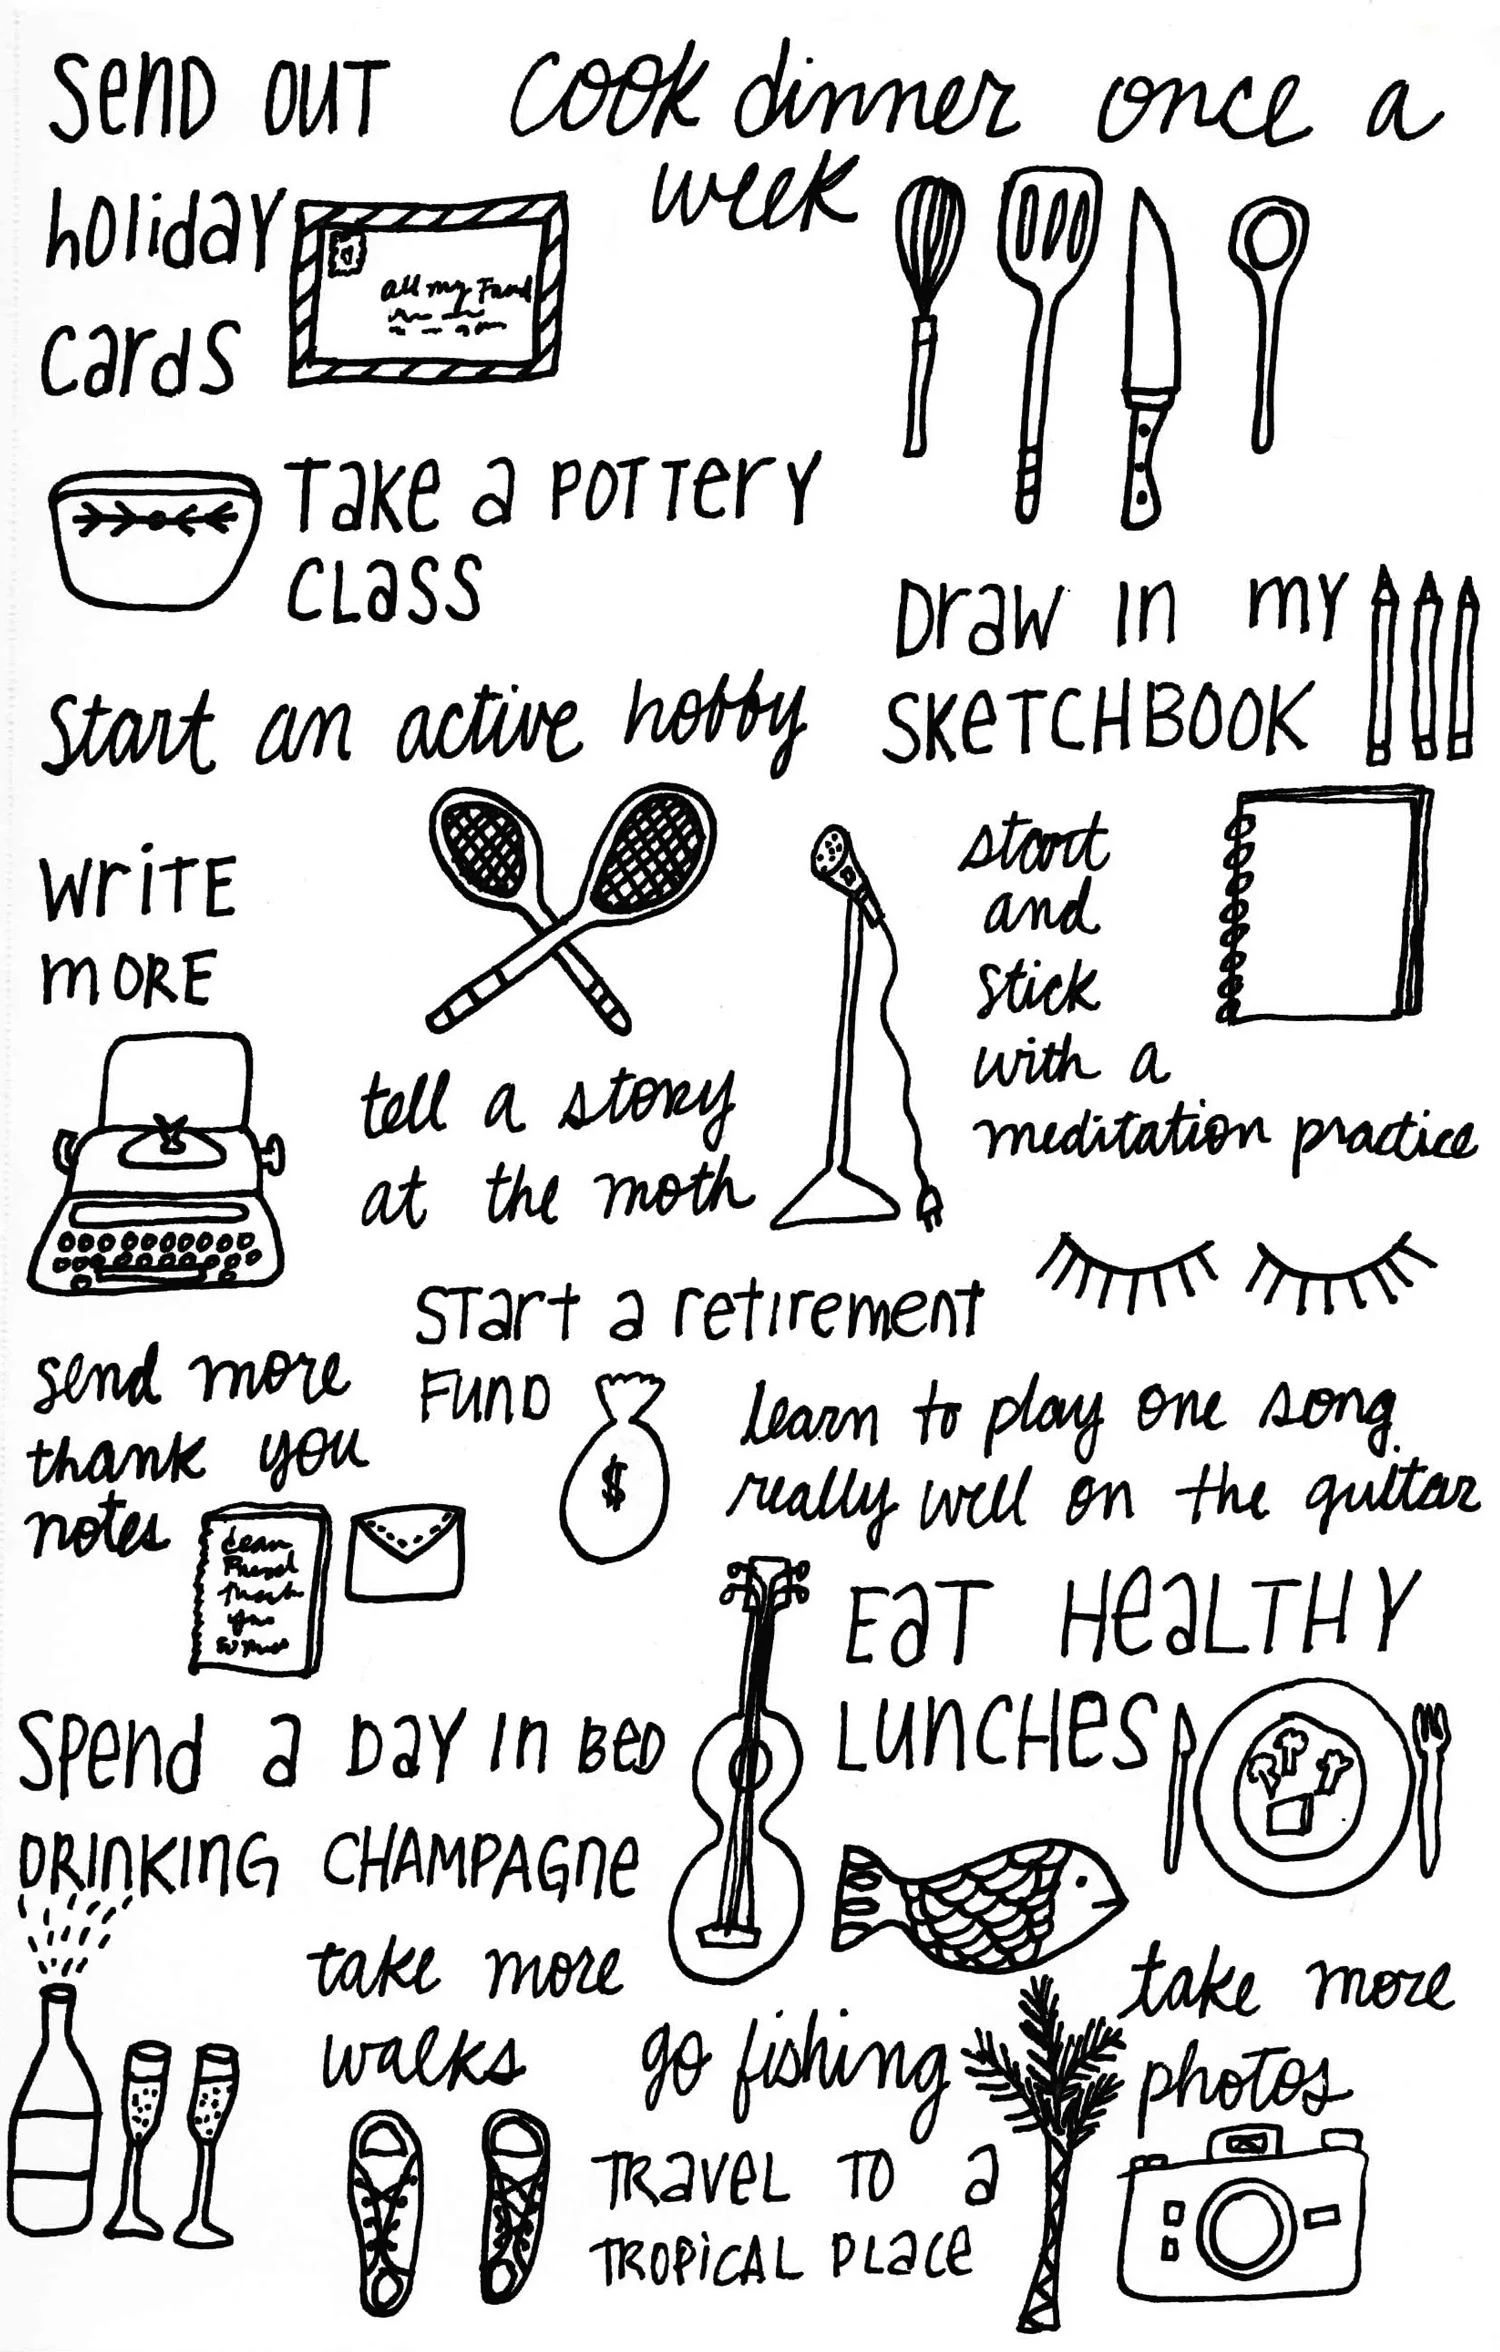 Send out
holiday
cards
all my
cook dinner once a
week
Take a pottery
class
Draw in my
sketchbook
start an active hobby
write
more
start
and
stick
with a
meditation practice
tell a story
at the moth
start a retirement
fund
$
send more
thank you
notes
learn to play one song
really well on the guitar
Eat Healthy
Lunches
Spend a day in bed
drinking champagne
take more
walks
go fishing
take more
photos
travel to a
tropical place